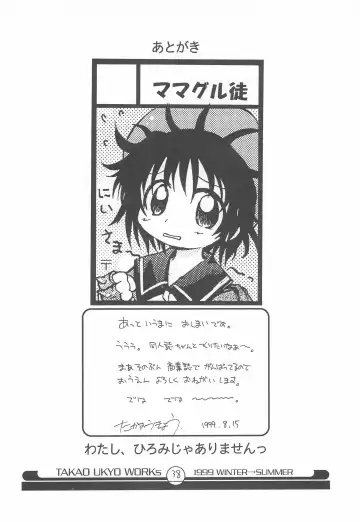 あとがき
ママグル徒
にいさま〜
あっというまに おしまいです。
うううう。同人誌ちゃんとつくりたいなぁ〜。
まあそのぶん 商業誌で がんばってるので
おうえん よろしく おねがいしまする。
では では 〜
たかおうきょう 1999.8.15
わたし、ひろみじゃありませんっ
TAKAO UKYO WORKs 38 1999 WINTER→SUMMER